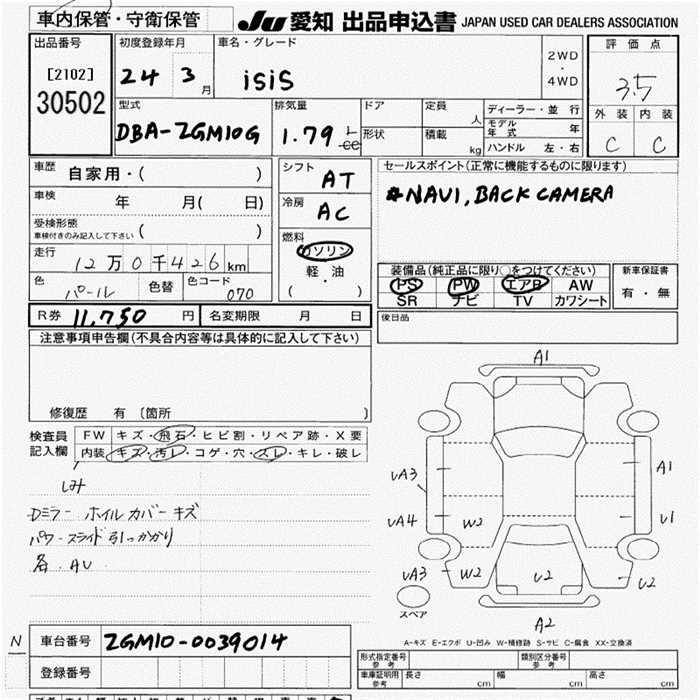 車内保管・守衛保管
JU 愛知 出品申込書 JAPAN USED CAR DEALERS ASSOCIATION
出品番号
[2102]
30502
初度登録年月
24 3月
車名・グレード
isis
2WD
・
4WD
評価点
3.5
外装 内装
C C
型式
DBA-ZGM10G
排気量
1.79 L
cc
ドア
形状
定員 人
積載 kg
ディーラー・並行
モデル年式 年
ハンドル 左・右
車歴 自家用・( )
車検 年 月( 日)
受検形態
車検付きのみ記入して下さい ( )
走行 12万0千426km
色 パール 色替 色コード 070
シフト AT
冷房 AC
燃料
ガソリン
軽・油
( )
セールスポイント(正常に機能するものに限ります)
#NAVI, BACK CAMERA
装備品(純正品に限り○をつけてください)
PS PW エアB AW
SR ナビ TV カワシート
新車保証書
有・無
R券 11,750円 名変期限 月 日
後日品
注意事項申告欄(不具合内容等は具体的に記入して下さい)
修復歴 有〔箇所 〕
検査員記入欄
FW キズ・飛石・ヒビ割・リペア跡・X要
内装 キズ・汚レ・コゲ・穴・スレ・キレ・破レ
しみ
Dミラー ホイルカバーキズ
パワースライド引っかかり
各.AU
A1
UA3
A1
UA4
W2
U1
UA3
W2
U2
U2
スペア
A2
A-キズ E-エクボ U-凹み W-補修跡 S-サビ C-腐食 XX-交換済
N
車台番号 ZGM10-0039014
登録番号
形式指定番号
参考
類別区分番号
参考
車庫証明用
参考
長さ cm
幅 cm
高さ cm